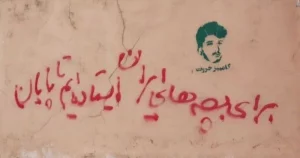 برای بچه های ایران ایستاده ایم تا پایان